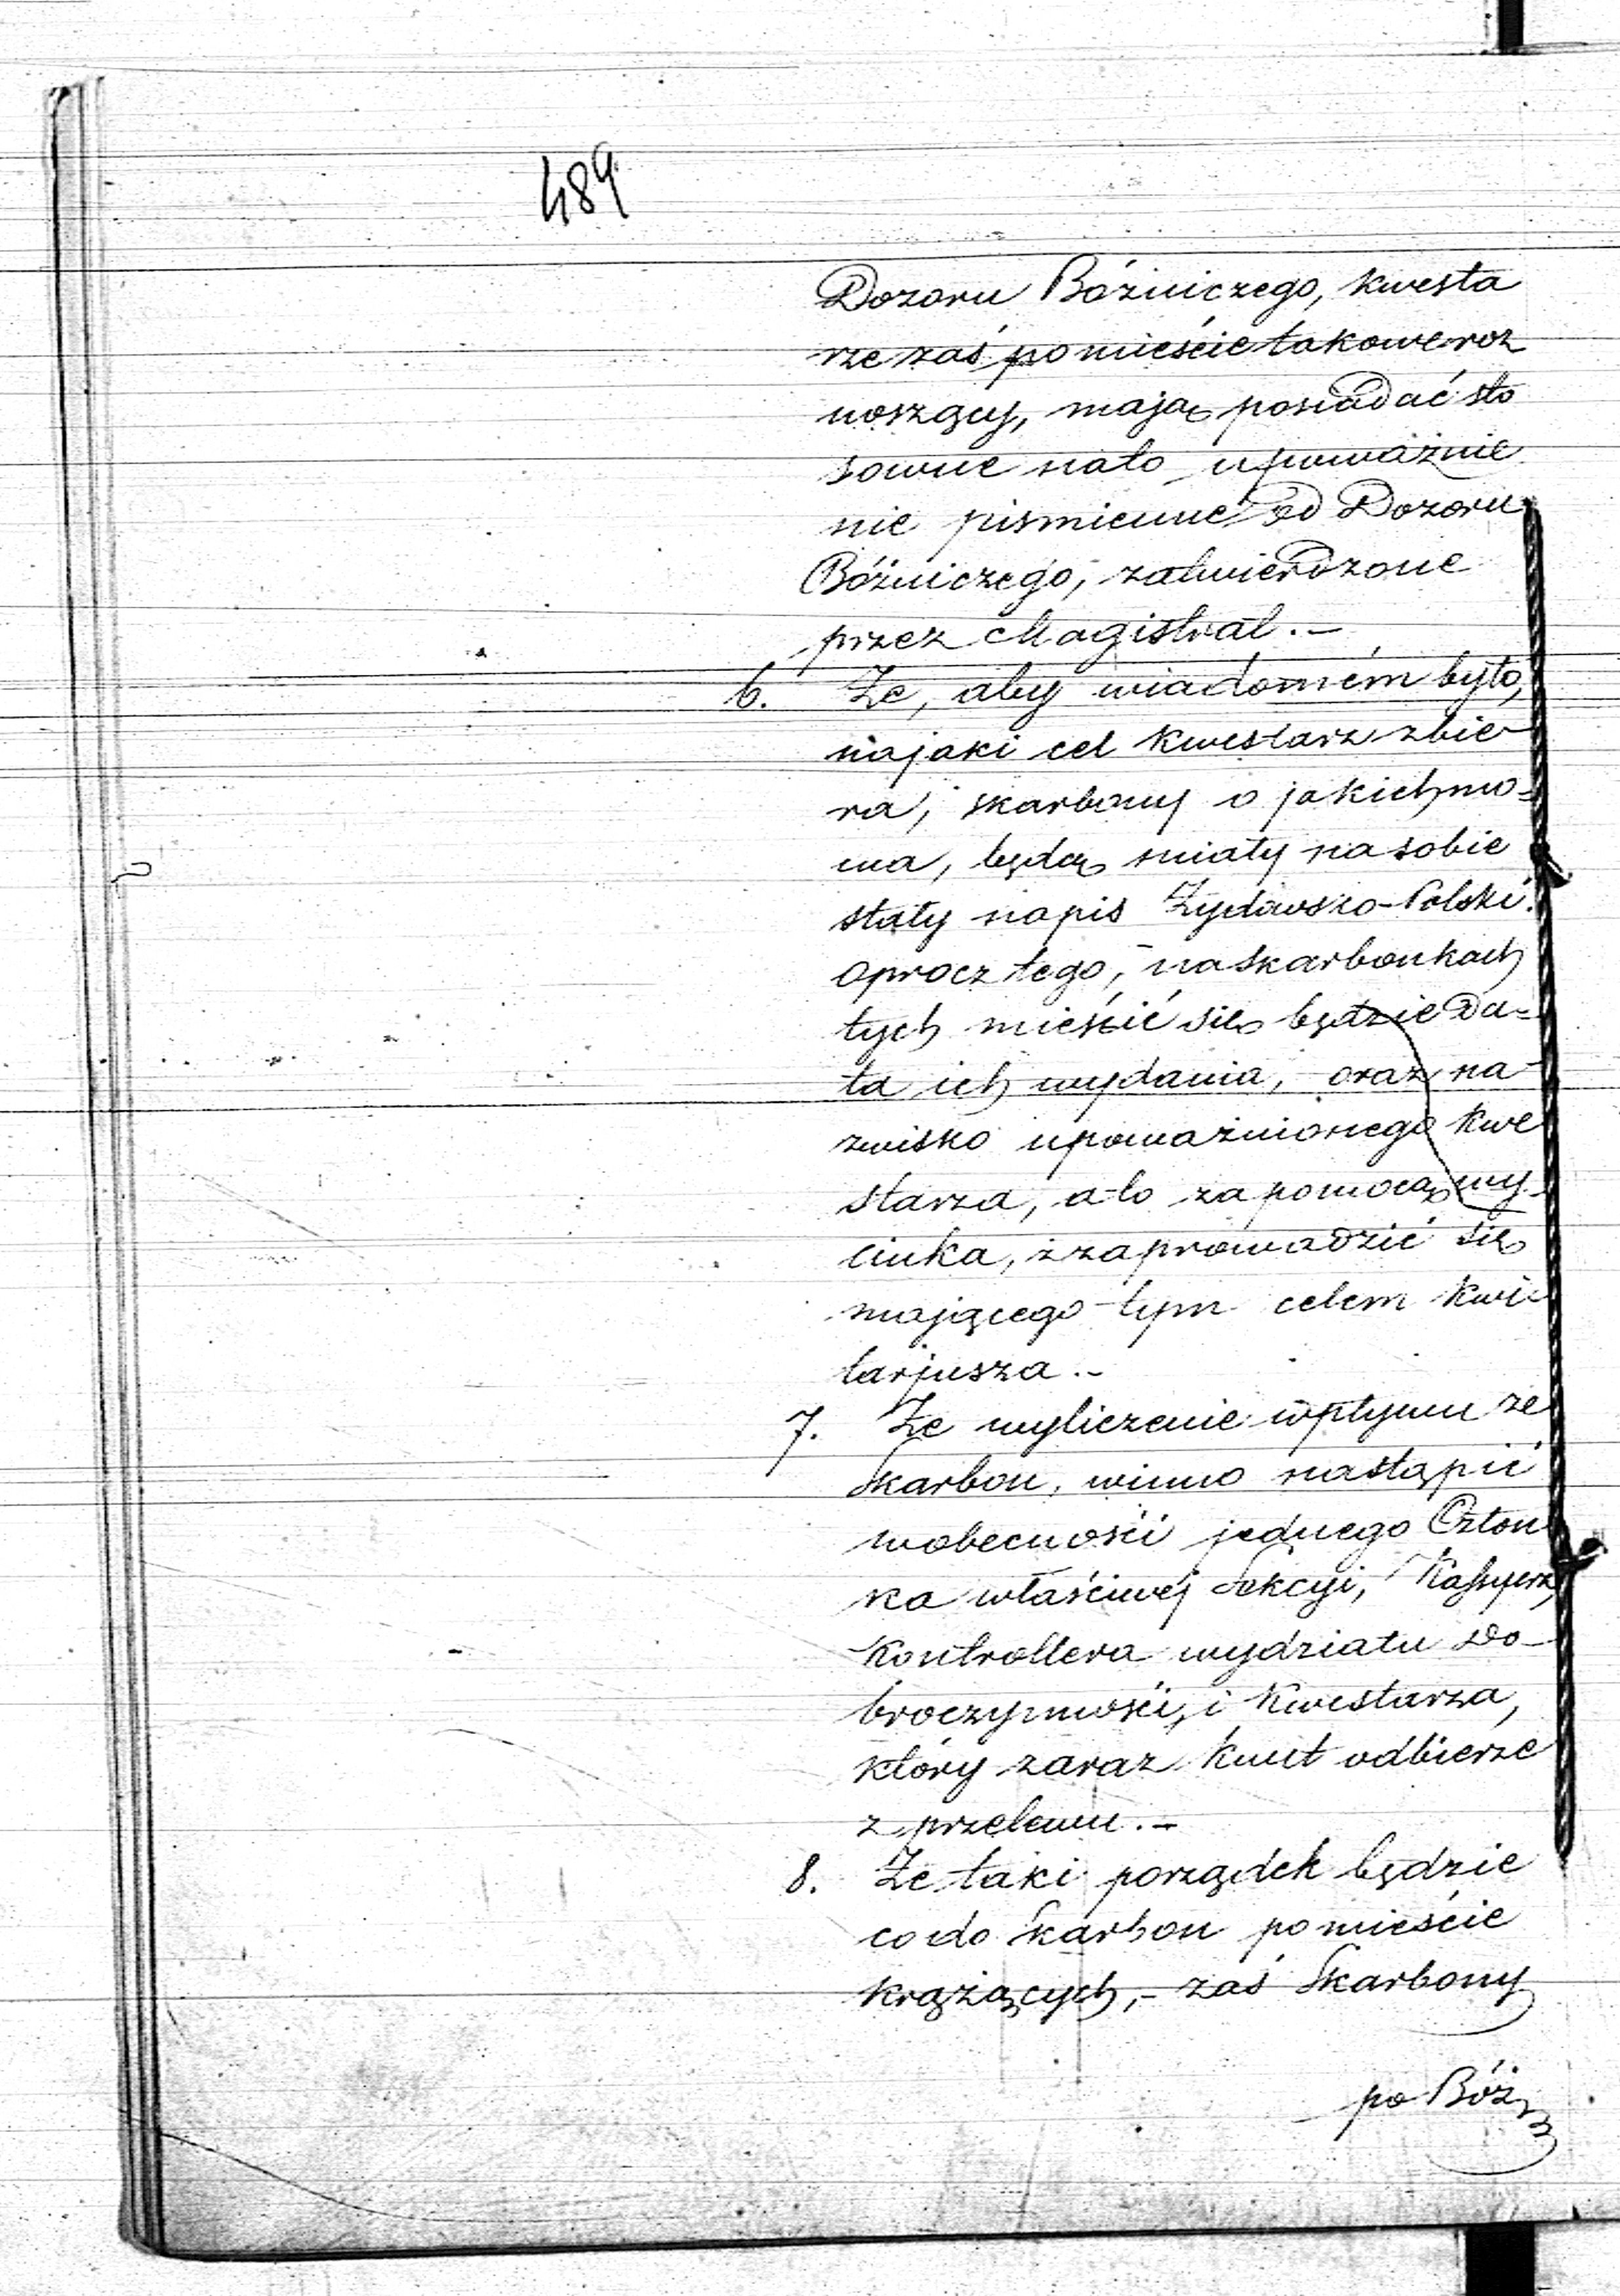 489
Dozoru Bóźniczego, kwesta
rze zaś po mieście takowe roz
noszący, mają posiadać sto
sowne nato upoważnie
nie piśmienne od Dozoru
Bóźniczego, zatwierdzone
przez Magistrat.–
6. Że, aby wiadomém było,
na jaki cel Kwestarz zbie-
ra, skarbony o jakich mo-
wa, będą miały na sobie
stały napis Żydowsko-Polski.
oprocz tego, na skarbonkach
tych mieścić się będzie Da-
ta ich wydania, oraz na-
zwisko upoważnionego Kwe
starza, a to za pomocą wy-
cinka, z zaprowadzić się
mającego tym celem Kwi-
tarjusza.–
7. Że wyliczenie wpływu ze
Skarbon, winno nastąpić
wobecności jednego Człon
ka właściwéj Sekcyi, Kassyera,
Kontrollera wydziału Do-
broczynności, i Kwestarza,
który zaraz kwit odbierze
z przelewu.–
8. Że taki porządek będzie
co do Skarbon po mieście
krążących,– zaś Skarbony
po Bóź